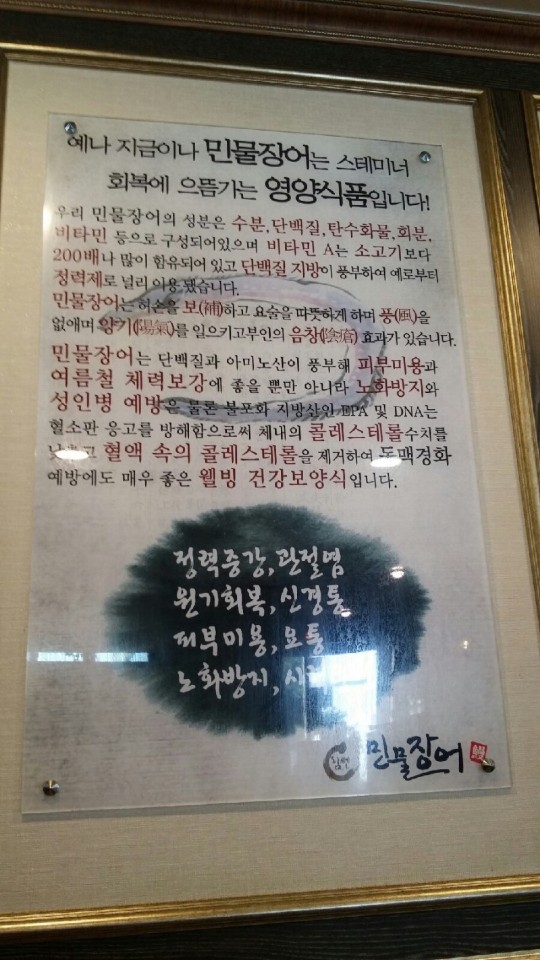 예나 지금이나 민물장어는 스테미너
회복에 으뜸가는 영양식품입니다!
우리 민물장어의 성분은 수분,단백질,탄수화물,회분,
비타민 등으로 구성되어있으며 비타민 A는 소고기보다
200배나 많이 함유되어 있고 단백질 지방이 풍부하여 예로부터
정력제로 널리 이용 됐습니다.
민물장어는 허손을 보(補)하고 요술을 따뜻하게 하며 풍(風)을
없애며 양기(陽氣)를 일으키고부인의 음창(陰瘡) 효과가 있습니다.
민물장어는 단백질과 아미노산이 풍부해 피부미용과
여름철 체력보강에 좋을 뿐만 아니라 노화방지와
성인병 예방은 물론 불포화 지방산인 EPA 및 DNA는
혈소판 응고를 방해함으로써 체내의 콜레스테롤수치를
낮추고 혈액 속의 콜레스테롤을 제거하여 동맥경화
예방에도 매우 좋은 웰빙 건강보양식입니다.
정력증강, 관절염
원기회복, 신경통
피부미용, 요통
노화방지,
민물장어